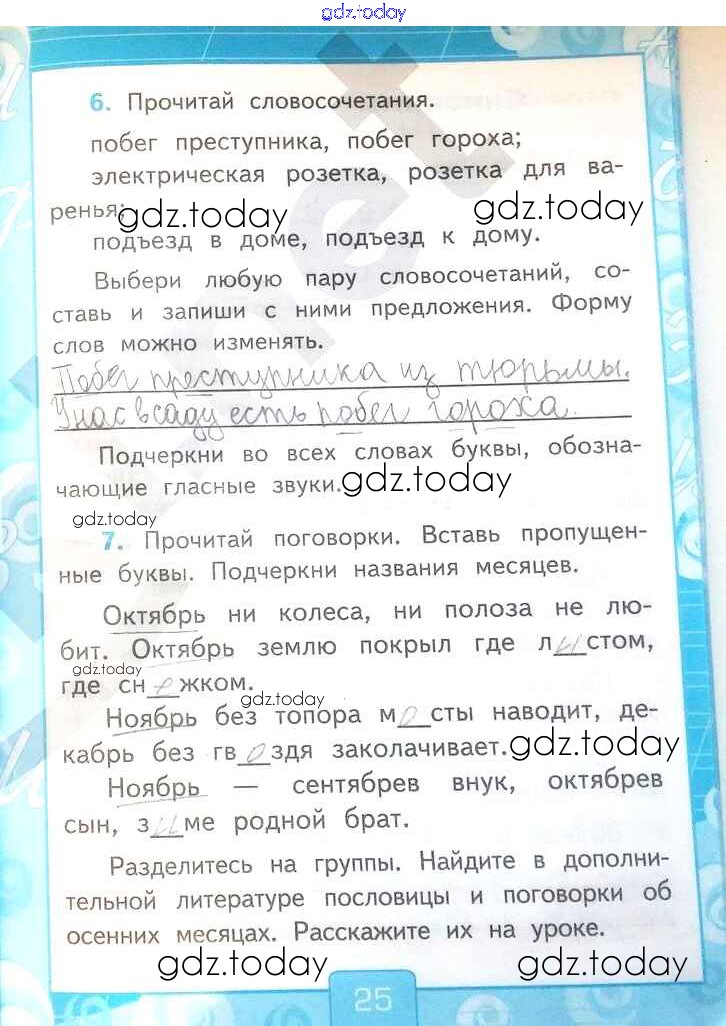 gdz.today
6. Прочитай словосочетания.
побег преступника, побег гороха;
электрическая розетка, розетка для ва-
ренья;
gdz.today gdz.today
подъезд в доме, подъезд к дому.
Выбери любую пару словосочетаний, со-
ставь и запиши с ними предложения. Форму
слов можно изменять.
Побег преступника из тюрьмы.
У нас в саду есть побег гороха.
Подчеркни во всех словах буквы, обозна-
чающие гласные звуки.
gdz.today
gdz.today
7. Прочитай поговорки. Вставь пропущен-
ные буквы. Подчеркни названия месяцев.
Октябрь ни колеса, ни полоза не лю-
бит. Октябрь землю покрыл где листом,
gdz.today
где снежком.
gdz.today
Ноябрь без топора мосты наводит, де-
кабрь без гвоздя заколачивает.
gdz.today
Ноябрь — сентябрев внук, октябрев
сын, зиме родной брат.
Разделитесь на группы. Найдите в дополни-
тельной литературе пословицы и поговорки об
осенних месяцах. Расскажите их на уроке.
gdz.today gdz.today
25